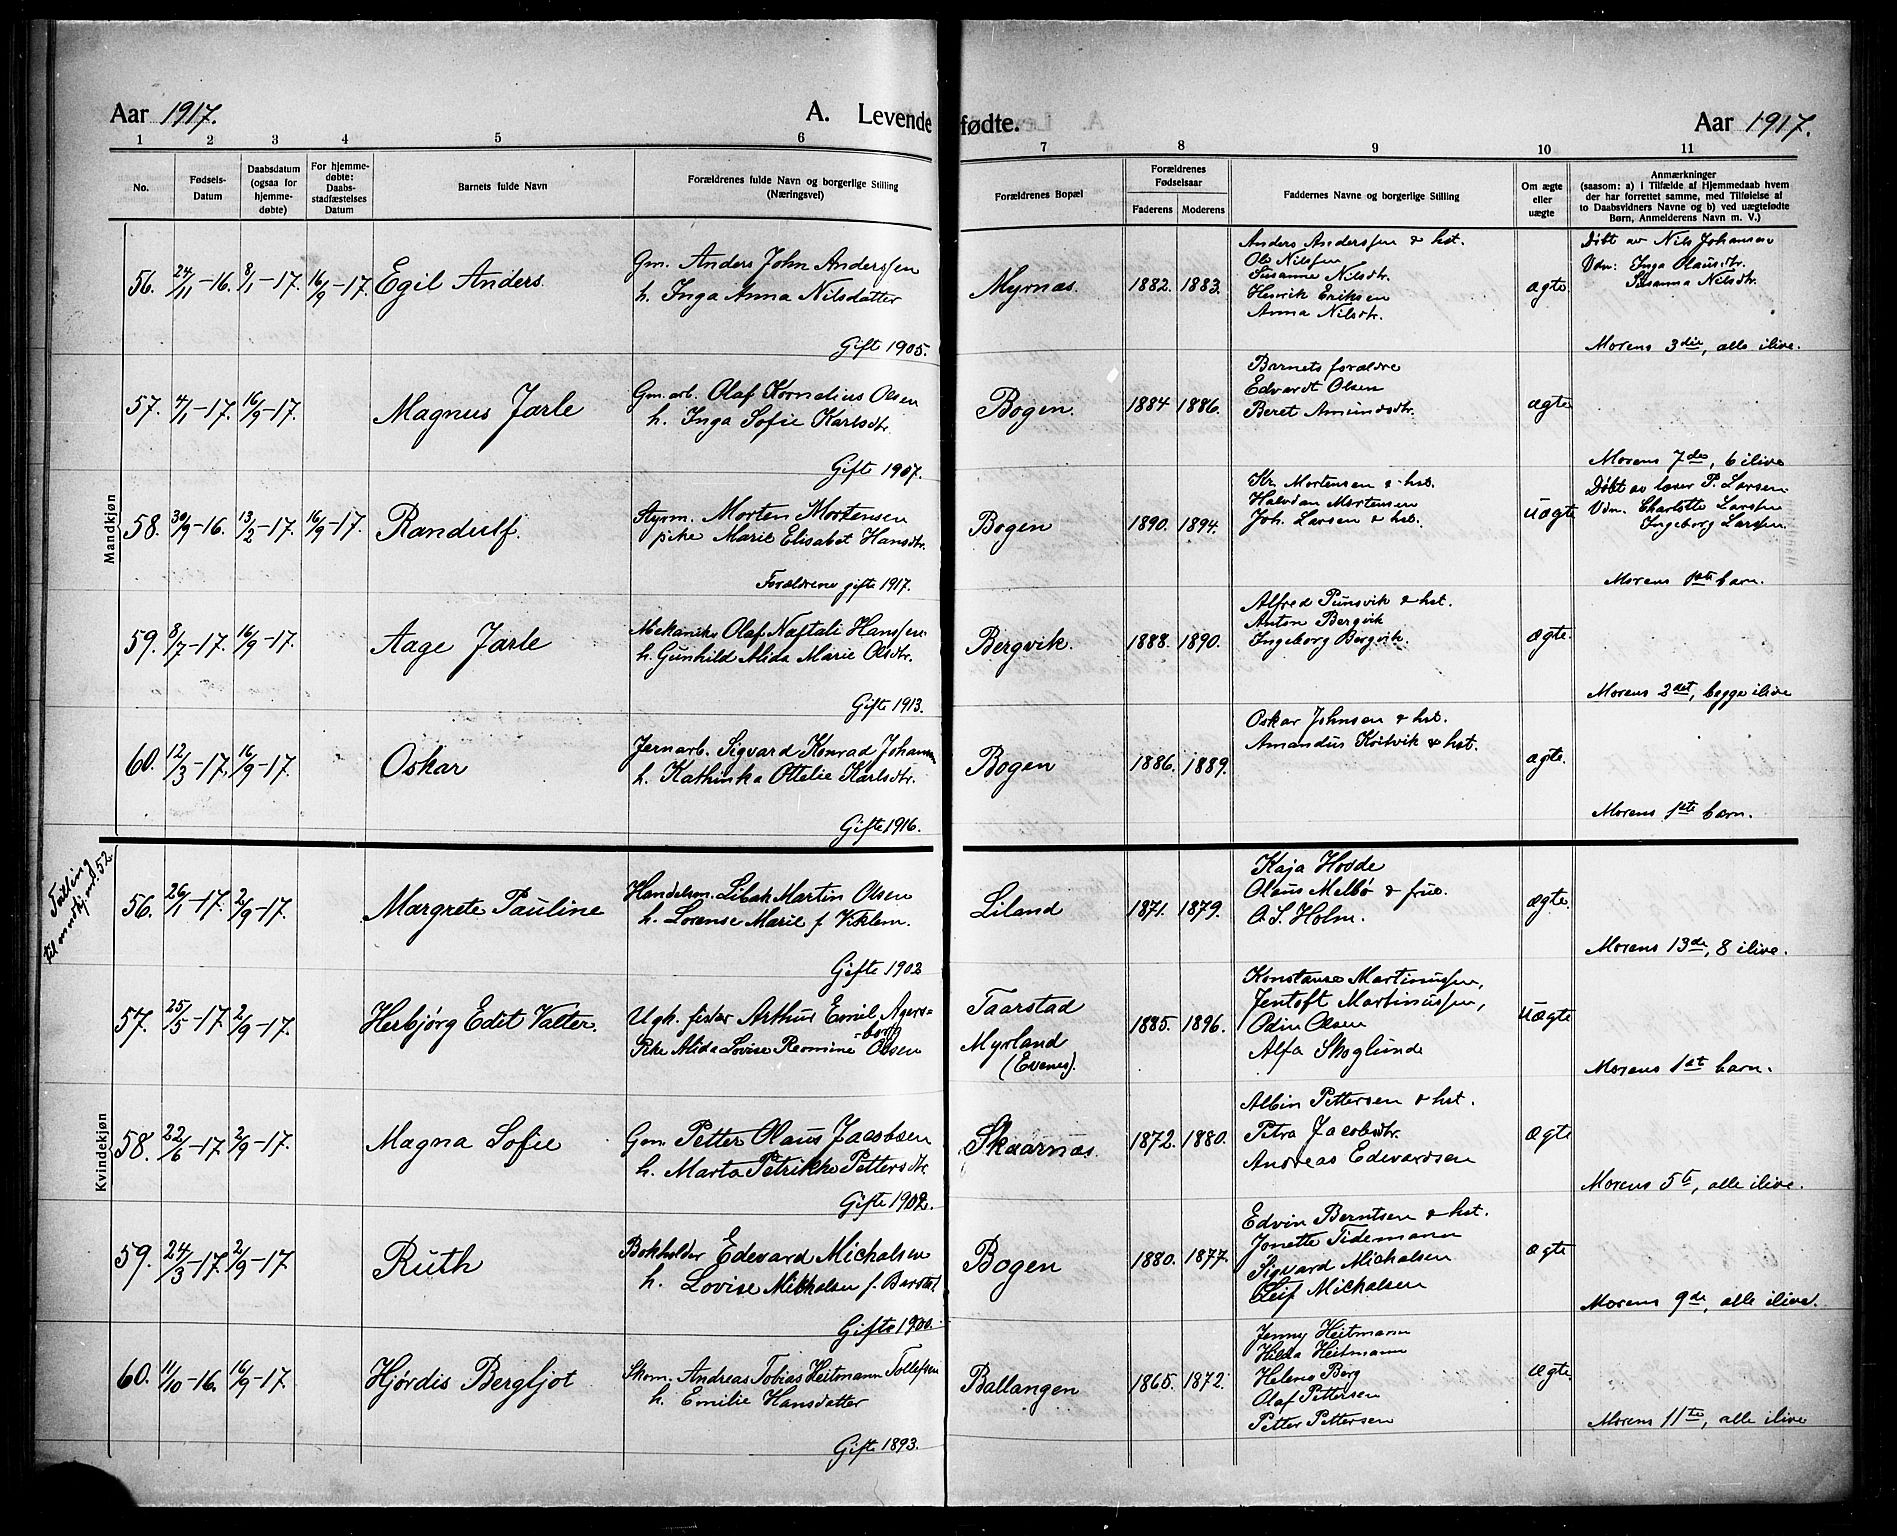 Aar 1917.
A. Levende fødte.
Aar 1917.
1 2 3 4 5 6 7 8 9 10 11
No.
Fødsels-
Datum
Daabsdatum
(ogsaa for
hjemme-
døbte)
For hjemme-
døbte:
Daabs-
stadfæstelses
Datum
Barnets fulde Navn
Forældrenes fulde Navn og borgerlige Stilling
(Næringsvei)
Forældrenes Bopæl
Forældrenes
Fødselsaar
Faderens Moderens
Faddernes Navne og borgerlige Stilling
Om ægte
eller
uægte
Anmærkninger
(saasom: a) i Tilfælde af Hjemmedaab hvem
der har forrettet samme, med Tilføielse af
to Daabsvidners Navne og b) ved uægtefødte
Børn, Anmelderens Navn m. V.)
Mandkjøn
56. 24/11-16. 8/1-17. 16/9-17. Egil Anders.
Gm. Anders John Anderssen
h. Inga Anna Nilsdatter
Gifte 1905.
Myrnæs. 1882. 1883.
Anders Anderssen & hst.
Ole Nilssen
Susanne Nilsdtr.
Henrik Eriksen
Anna Nilsdtr.
ægte
Døbt av Nils Johansen
Vdn: Inga Olausdtr.
Susanna Nilsdtr.
Morens 3die, alle ilive.
57. 4/1-17. 16/9-17. Magnus Jarle
Gm.arb. Olaf Kornelius Olsen
h. Inga Sofie Karlsdtr.
Gifte 1907.
Bogen. 1884 1886.
Barnets forældre
Edvardt Olsen
Beret Amundsdtr.
ægte
Morens 7de, 6 ilive
58. 30/9-16. 13/2-17. 16/9-17. Randulf.
Styrm. Morten Mortensen
pike Marie Elisabet Hansdtr.
Forældrene gifte 1917.
Bogen 1890. 1894.
Kr. Mortensen & hst.
Halvdan Mortensen
Joh. Larsen & hst.
uægte
Døbt av lærer P. Larsen
Vdn. Charlotte Larssen
Ingeborg Larssen.
Morens 1ste barn.
59. 8/7-17. 16/9-17. Aage Jarle
Mekaniker Olaf Naftali Hanssen
h. Gunhild Alida Marie Olsdtr.
Gifte 1913.
Bergvik. 1888. 1890.
Alfred Punsvik & hst.
Anton Bergvik
Ingeborg Bergvik.
ægte.
Morens 2det, begge ilive
60. 12/3-17. 16/9-17. Oskar
Jernarb. Sigvard Konrad Johansen
h. Kathinka Ottelie Karlsdtr.
Gifte 1916.
Bogen 1886. 1889.
Oskar Johnsen & hst.
Amandus Koitvik & hst.
ægte.
Morens 1ste barn.
Kvindekjøn
til mandkj. nr. 52
56. 26/1-17. 2/9-17. Margrete Pauline
Handelsm. Libak Martin Olsen
h. Lorense Marie f.
Gifte 1902
Liland 1871. 1879.
Kaja Hovde
Olaus Melbø & frue.
O. S. Holm.
ægte.
Morens 13de, 8 ilive.
57. 25/5-17. 2/9-17. Herbjørg Edit Valter.
Ugh. fisker Arthur Emil Agers-
borg
Pike Alida Lovise Reomine Olsen
Taarstad
Myrland
(Evenes).
1885. 1896.
Konstanse Martinussen,
Jentoft Martinussen,
Odin Olsen
Alfa Skoglunde
uægte
Morens 1st barn.
58. 22/6-17. 2/9-17. Magna Sofie
Gm. Petter Olaus Jacobsen
h. Marta Petrikke Pettersdtr
Gifte 1902.
Skaarnæs. 1872. 1880.
Albin Pettersen & hst.
Petra Jacobsdtr.
Andreas Edevardsen
ægte
Morens 5te, alle ilive.
59. 24/3-17. 2/9-17 Ruth
Bokholder Edevard Michalsen
h. Lovise Mikkalsen f.
Gifte 1900.
Bogen 1880. 1877.
Edvin Berntsen & hst.
Jonette Tidemann
Sigvard Michalsen
Leif Michalsen
ægte
Morens 9de, alle ilive.
60. 11/10-16. 16/9-17. Hjørdis Bergljot
Skom. Andreas Tobias Heitmann Tollefsen
h. Emilie Hansdatter
Gifte 1893.
Ballangen 1865. 1872.
Jenny Heitmann
Hilda Heitmann
Helene Borg
Olaf Pettersen
Petter Pettersen
ægte
Morens 11te, alle ilive